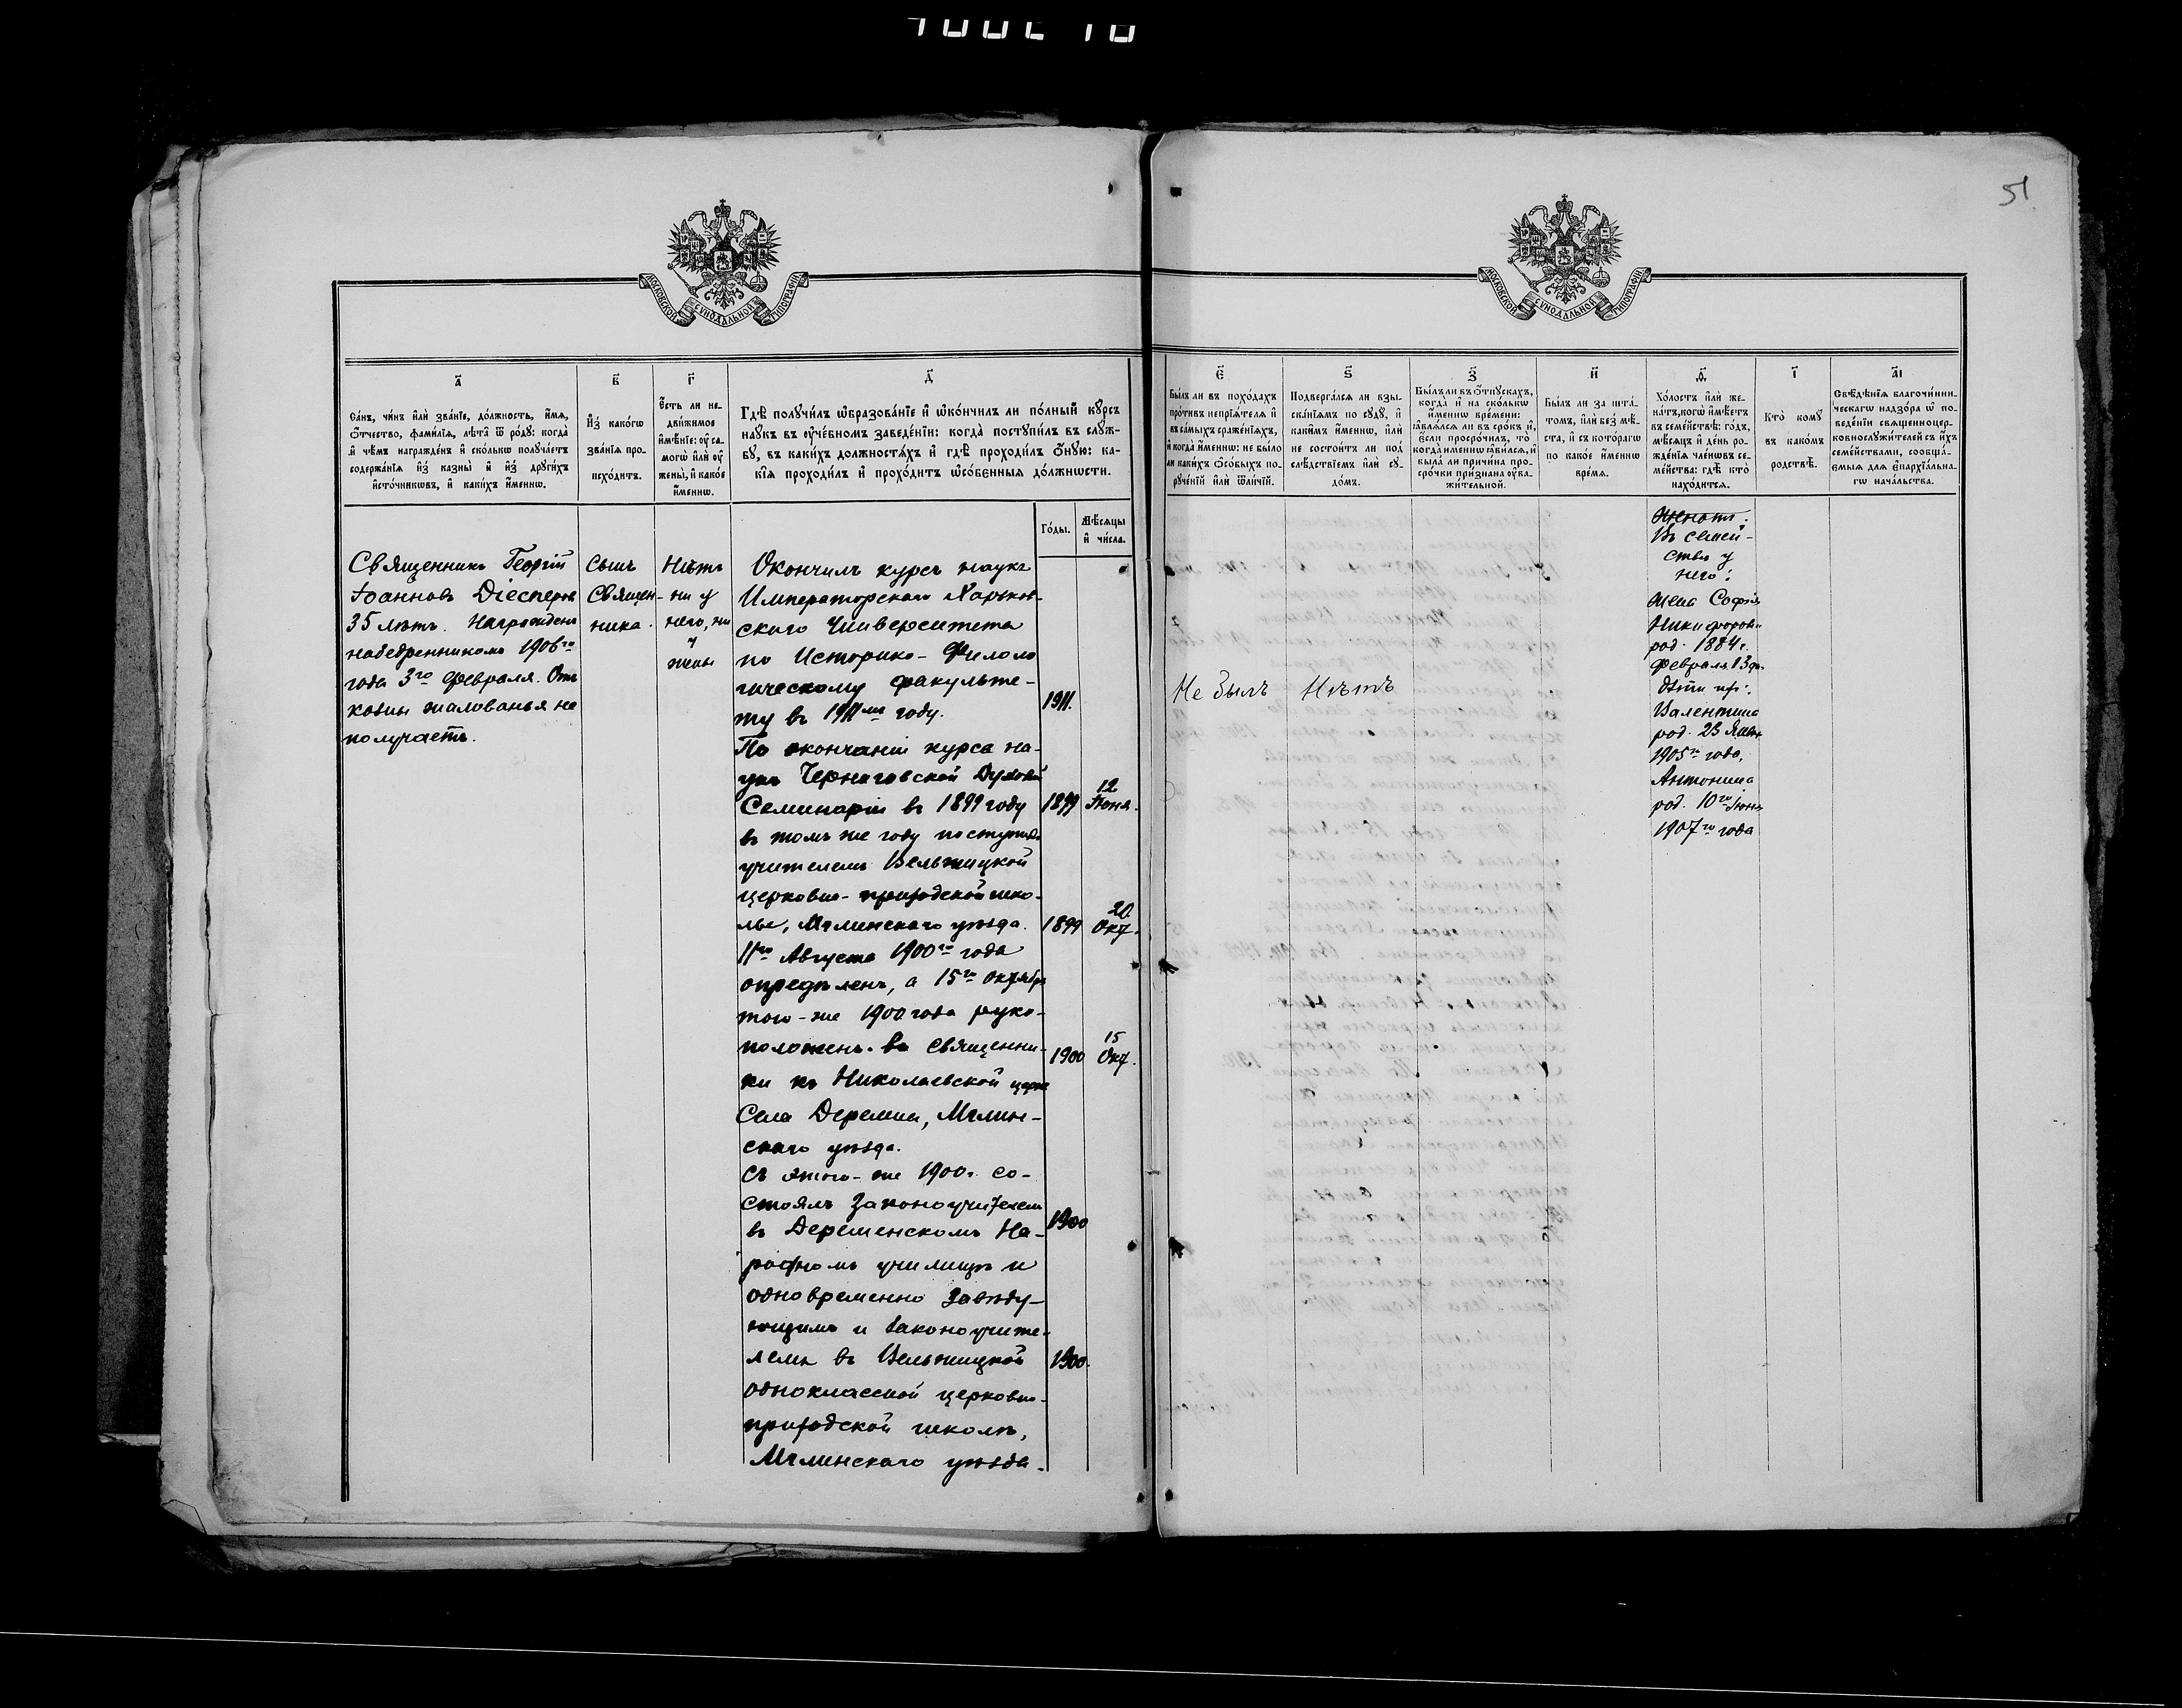 51
МОСКОВСКОЙ СѴНОДАЛЬНОЙ ТИПОГРАФІИ
МОСКОВСКОЙ СѴНОДАЛЬНОЙ ТИПОГРАФІИ
а҃
Са́нъ, чи́нъ и҆лѝ зва́нїе, до́лжность, и҆́мѧ,
ѻ҆́тчество, фами́лїѧ, лѣ́та ѿ ро́дꙋ: когда̀
и҆ чѣ́мъ награжде́нъ и҆ ско́лькѡ полꙋча́етъ
содержа́нїѧ и҆з̾ казны̀ и҆ и҆з̾ дрꙋги́хъ
и҆сто́чникѡвъ, и҆ каки́хъ и҆́меннѡ.
в҃
И҆з̾ како́гѡ
зва́нїѧ про-
исхо́дитъ.
г҃
Е҆́сть ли не-
дви́жимое
и҆мѣ́нїе: ᲂу҆ са-
могѡ̀ и҆лѝ ᲂу҆
жены̀, и҆ како́е
и҆́меннѡ.
д҃
Гдѣ̀ полꙋчи́лъ ѡ҆бразова́нїе и҆ ѡ҆ко́нчилъ ли по́лный кꙋ́рсъ
наꙋ́къ въ ᲂу҆че́бномъ заведе́нїи: когда̀ постꙋпи́лъ въ слꙋ́ж-
бꙋ, въ каки́хъ должностѧ́хъ и҆ гдѣ̀ проходи́лъ ѻ҆́нꙋю: ка-
кі́ѧ проходи́лъ и҆ прохо́дитъ ѡ҆со́бенныѧ до́лжнѡсти.
Го́ды.
Мѣ́сѧцы
и҆ чи́сла.
Священникъ Георгій
Іоанновъ Діесперовъ
35 лѣтъ. Награжденъ
набедренникомъ 1906го
года 3го Февраля. Отъ
казны жалованья не
получаетъ.
Сынъ
Священ-
ника.
Нѣтъ
ни у
него, ни
у
жены
Окончилъ курсъ наукъ
Императорскаго Харьков-
скаго Университета
по Историко-Филоло
гическому факульте-
ту въ 1911мъ году.
1911.
По окончаніи курса на-
укъ Черниговской Духовной
Семинаріи въ 1899 году
1899
12
Іюня.
въ томъ же году поступилъ
учителемъ Вельжицкой
церковно-приходской шко-
лы, Мглинскаго уѣзда.
1899
20
Окт.
11го Августа 1900го года
опредѣленъ, а 15го Октября
того-же 1900 года руко-
положенъ въ священни-
1900
15
Окт.
ки къ Николаевской церкви
Села Деремны, Мглин-
скаго уѣзда.
Съ этого-же 1900г. со-
стоялъ законоучителемъ
1900
въ Деременскомъ На-
родномъ училищѣ и
одновременно завѣду-
ющимъ и законоучите-
лемъ въ Вельжицкой
1900.
одноклассной церковно-
приходской школѣ,
Мглинскаго уѣзда.
є҃
Бы́лъ ли въ похо́дахъ
про́тивъ непрїѧ́телѧ и҆
въ са́мыхъ сраже́нїѧхъ,
и҆ когда̀ и҆́меннѡ: не бы́ло
ли каки́хъ ѻ҆со́быхъ по-
рꙋче́нїй и҆лѝ ѿли́чїй.
ѕ҃
Подверга́лсѧ ли взы-
ска́нїѧмъ по сꙋдꙋ̀, и҆
каки̑мъ и҆́меннѡ, и҆лѝ
не состои́тъ ли под̾
слѣ́дствїемъ и҆лѝ сꙋ-
до́мъ.
з҃
Бы́лъ ли въ ѻ҆́тпꙋскахъ,
когда̀ и҆ на ско́лькѡ
и҆́меннѡ вре́мени:
ꙗ҆влѧ́лсѧ ли въ сро́къ и҆,
є҆́сли просро́чилъ, то
когда̀ и҆́меннѡ ꙗ҆ви́лсѧ, и҆
была́ ли причи́на про-
сро́чки при́знана ᲂу҆ва-
жи́тельной.
и҃
Бы́лъ ли за шта́-
томъ, и҆лѝ без̾ мѣ́-
ста, и҆ съ кото́рагѡ
по како́е и҆́меннѡ
вре́мѧ.
ѳ҃
Хо́лостъ и҆лѝ же-
на́тъ, когѡ̀ и҆мѣ́етъ
въ семе́йствѣ: го́дъ,
мѣ́сѧцъ и҆ де́нь ро-
жде́нїѧ чле́нѡвъ се-
ме́йства: гдѣ̀ ктѡ̀
нахо́дитсѧ.
і҃
Ктѡ̀ комꙋ̀
въ како́мъ
родствѣ̀.
а҃і
Свѣ́дѣнїѧ благочи́нни-
ческагѡ надзо́ра ѡ҆ по-
веде́нїи свѧщенноцер-
ковнослꙋжи́телей съ и҆́хъ
семе́йствами, соѡбща́-
емыѧ длѧ є҆парх їа́льна-
гѡ нача́льства.
Не былъ
Нѣтъ
Женатъ.
Въ семей-
ствѣ у
него:
жена Софія
Никифорова
род. 1884г.
Февраля 13 дня
Дѣти их:
Валентина
род. 23 Янв
1905го года,
Антонина
род. 10го Іюня
1907го года